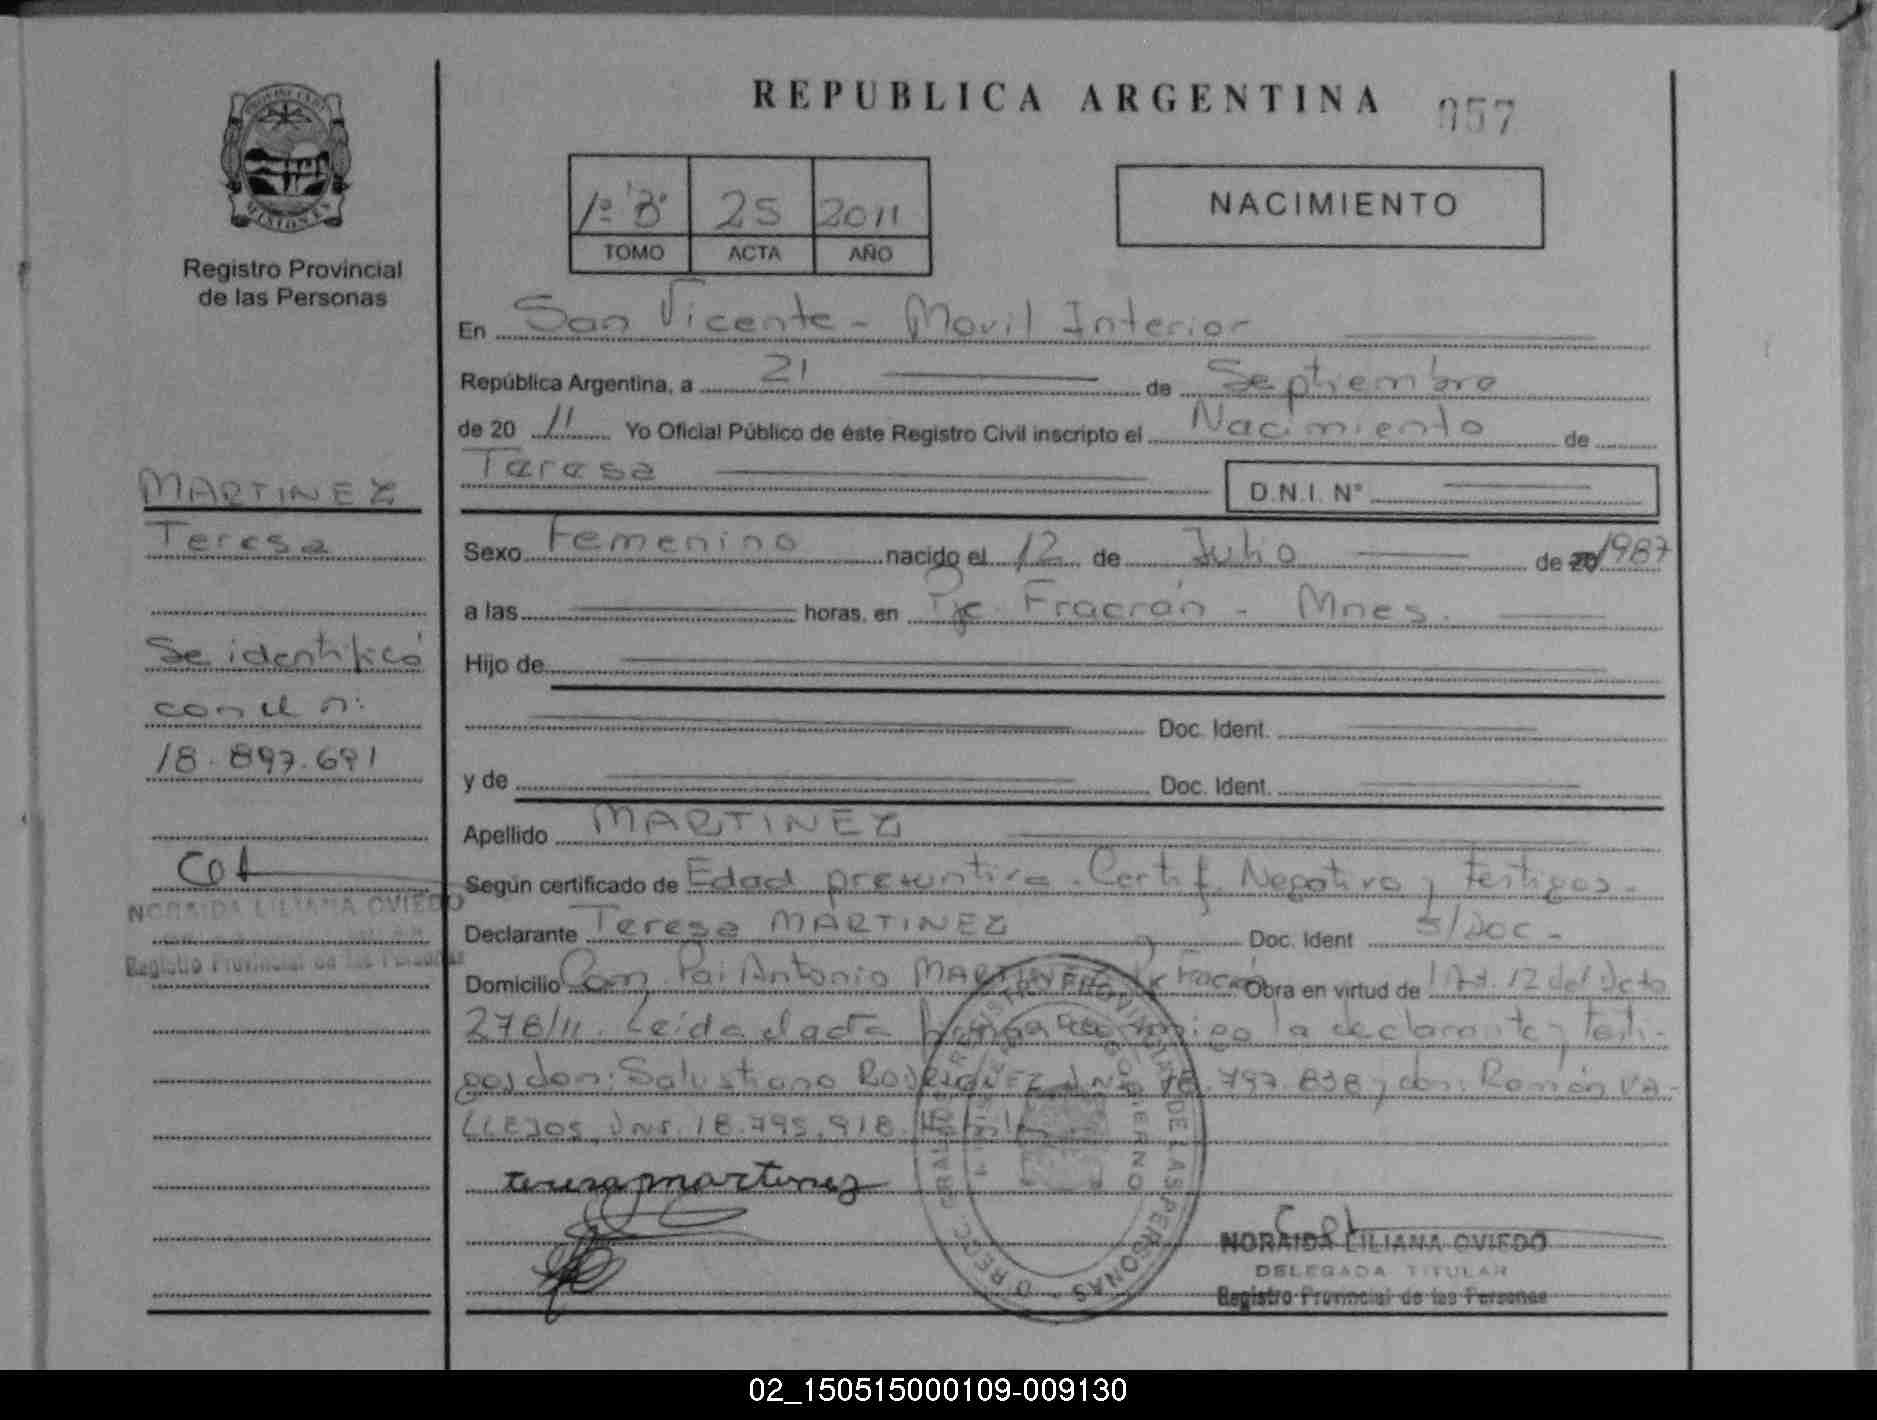 REPUBLICA ARGENTINA 057
1º "B" 25 2011
TOMO ACTA AÑO
NACIMIENTO
Registro Provincial
de las Personas
En San Vicente - Movil Interior
República Argentina, a 21 de Septiembre
de 20 11 Yo Oficial Público de éste Registro Civil inscripto el Nacimiento de
Teresa D.N.I. Nº
Sexo Femenino nacido el 12 de Julio de 20 1987
a las horas, en Pje. Fracrán - Mnes.
Hijo de
Doc. Ident.
y de Doc. Ident.
Apellido MARTINEZ
Según certificado de Edad presuntiva - Certif. Negativo y testigos -
Declarante Teresa MARTINEZ Doc. Ident S/Doc -
Domicilio Com. Pai Antonio MARTINEZ Obra en virtud de Art. 12 del Dcto
278/11. Leída el acta firman conmigo la declarante y testi-
gos don: Salustiano RODRIGUEZ DNI 18.797.838 y don: Ramón VA-
LLEJOS, DNI. 18.795.918.
teresa martinez
NORAIDA LILIANA OVIEDO
DELEGADA TITULAR
Registro Provincial de las Personas
MARTINEZ
Teresa
Se identificó
con el n:
18.897.691
NORAIDA LILIANA OVIEDO
Registro Provincial de las Personas
02_150515000109-009130